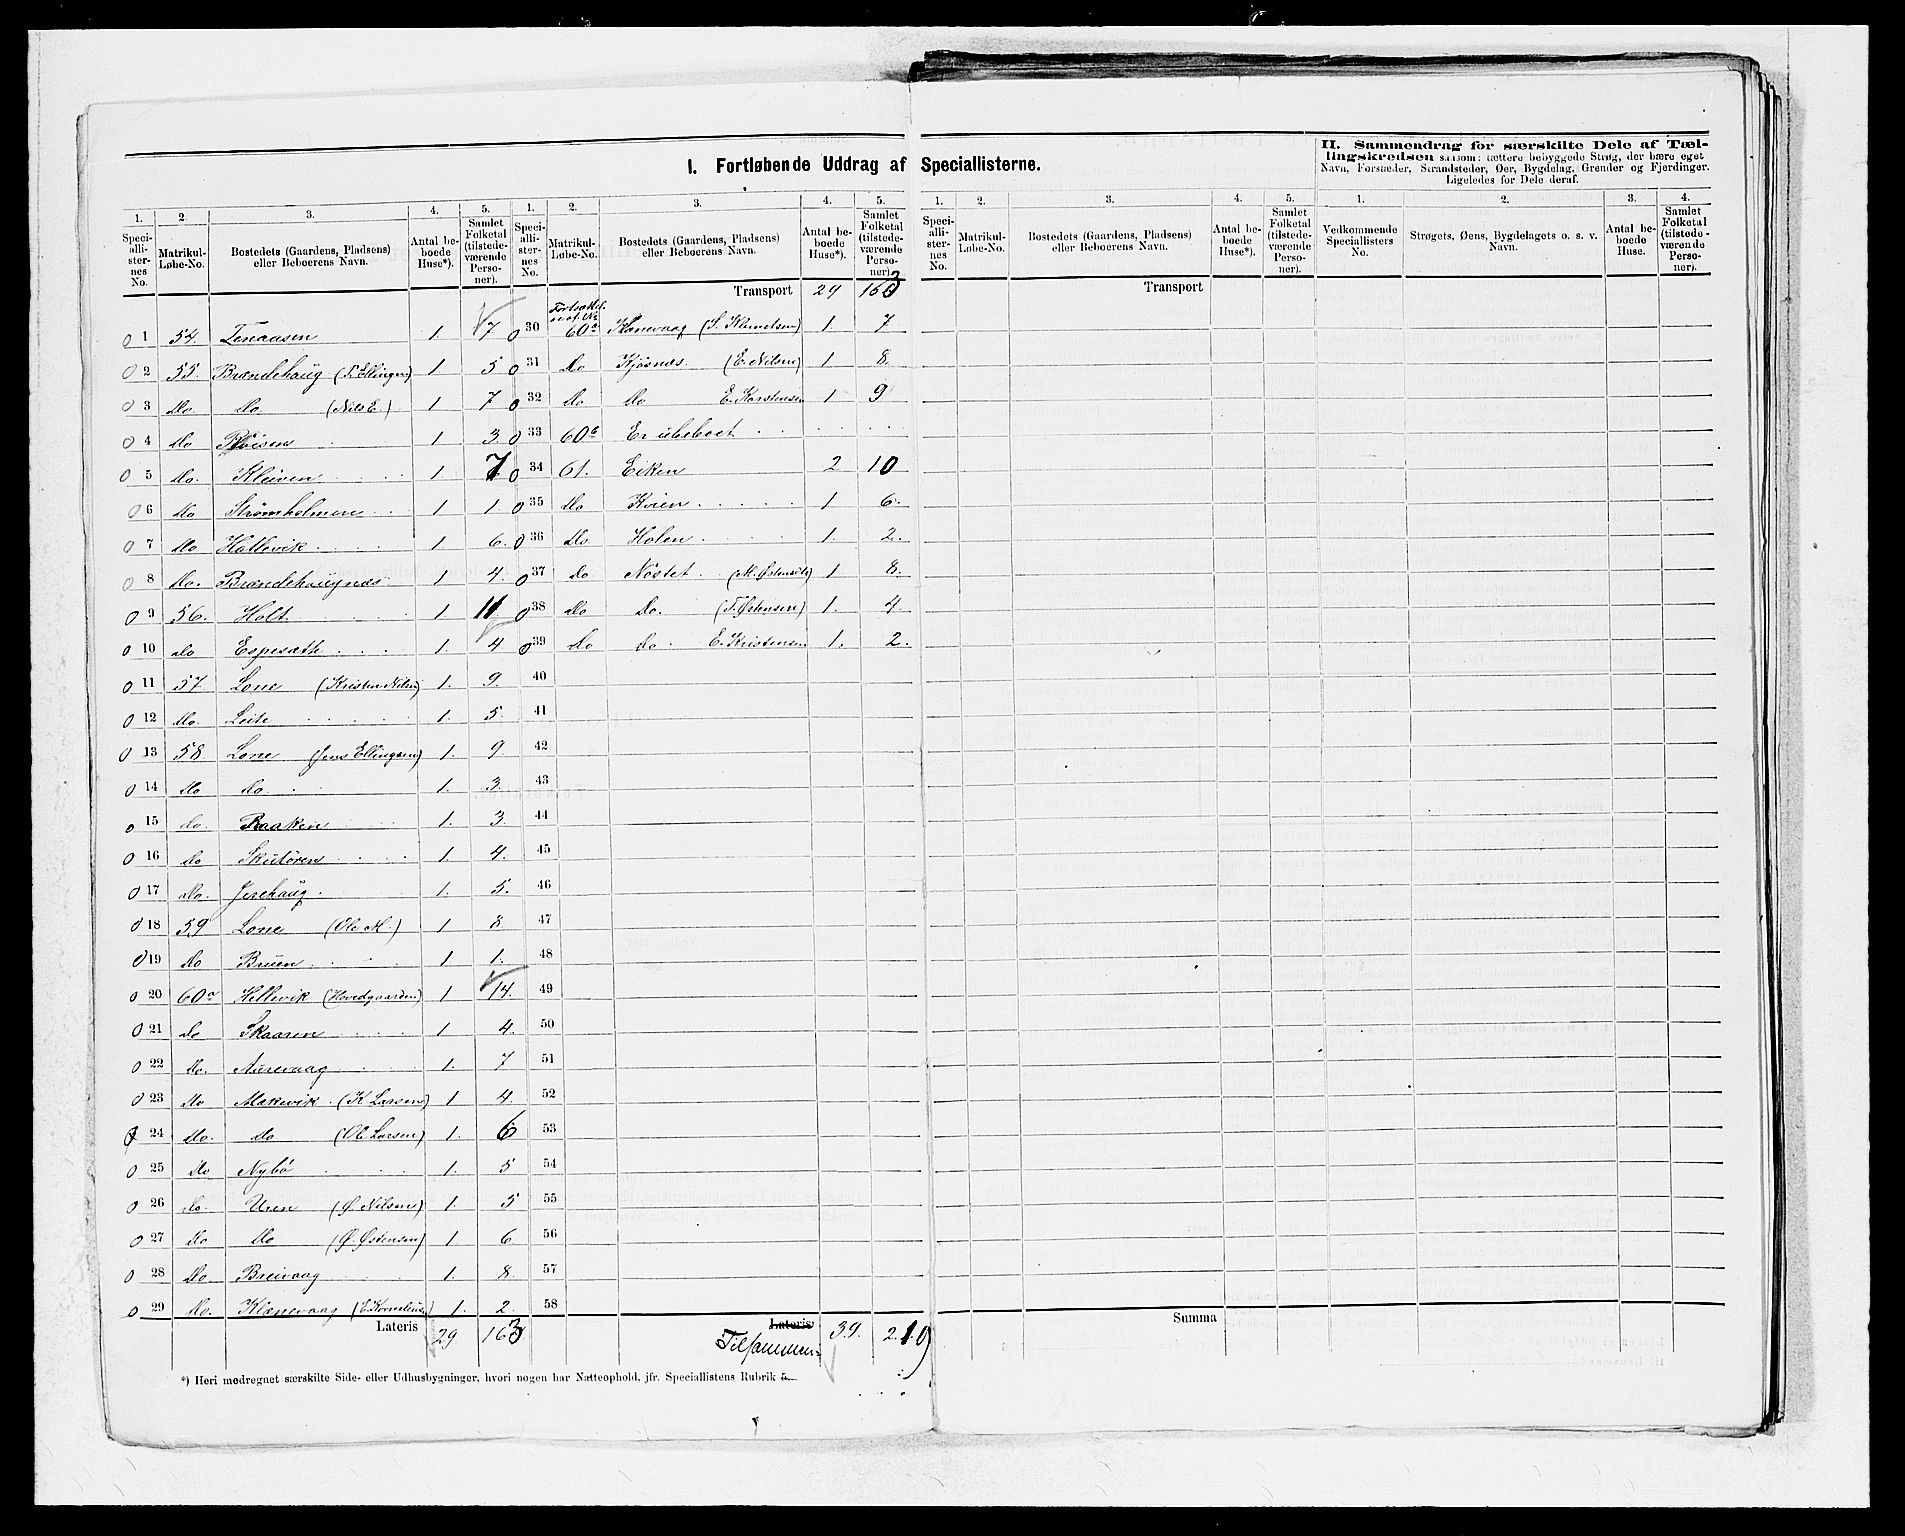 I. Fortløbende Uddrag af Speciallisterne.
II. Sammendrag for særskilte Dele af Tæl-
lingskredsen saasom: tættere bebyggede Strøg, der bære eget
Navn, Forstæder, Strandsteder, Øer, Bygdelag, Grender og Fjerdinger.
Ligeledes for Dele deraf.
1. 2. 3. 4. 5. 1. 2. 3. 4. 5. 1. 2. 3. 4. 5. 1. 2. 3. 4.
Speciallisternes No. Matrikul-Løbe-No. Bostedets (Gaardens, Pladsens) eller Beboerens Navn. Antal beboede Huse*). Samlet Folketal (tilstedeværende Personer).
Speciallisternes No. Matrikul-Løbe-No. Bostedets (Gaardens, Pladsens) eller Beboerens Navn. Antal beboede Huse*). Samlet Folketal (tilstedeværende Personer).
Speciallisternes No. Matrikul-Løbe-No. Bostedets (Gaardens, Pladsens) eller Beboerens Navn. Antal beboede Huse*). Samlet Folketal (tilstedeværende Personer).
Vedkommende Speciallisters No. Strøgets, Øens, Bygdelagets o. s. v. Navn. Antal beboede Huse. Samlet Folketal (tilstedeværende Personer).
1 54. Tenaasen 1. 7
2 55. Brændehaug (P. Ellingsen) 1 5
3 Do. Do. (Nils E.) 1 7
4 Do 1 3.
5 Do. Kleiven 1 7
6 Do Strømholmen 1 1.
7 Do Hattevik 1 6.
8 Do. Brændehaugnæs 1 4.
9 56. Holt 1. 11
10 Do Espesæth 1. 4
11 57 Lone (Kristen Nilsen) 1. 9.
12 Do. Leite 1. 5.
13 58. Lone (Jens Ellingsen) 1. 9.
14 Do Do. 1. 3.
15 Do. Raaken 1. 3.
16 Do Skutøren 1. 4.
17 Do. Jerehaug 1. 5.
18 59 Lone (Ole M.) 1 8
19 Do Bruen 1 1.
20 60a Hellevik (Hovedgaarden) 1 14.
21 Do Skaaren 1 4.
22 Do. Aurevaag 1. 7
23 Do Mækevik (K Larsen) 1 4.
24 Do. Do (Ole Larsen) 1. 6
25 Do Nybö 1. 5
26 Do. Uren (Ø. Nilsen) 1. 5
27 Do Do (Ø. Østensen) 1 6.
28 Do. Breivaag 1. 8.
29 Do. Klænevaag (E. Kornelius) 1. 2.
Lateris 29 163
Transport 29 163
30 60a Klænevaag (S. Klemetsen) 1. 7
31 Do Kjösnæs. (E. Nilsen) 1 8.
32 Do Do E. Karstensen 1 9
33 60b Er ubeboet
34 61. Eiken 2 10
35 Do Kvien 1 6.
36 Do. Holen 1. 2.
37 Do Nöstet (M. Østensen) 1 8.
38 Do Do. (T. Østensen) 1. 4.
39 Do Do E. Kristensen 1. 2.
40
41
42
43
44
45
46
47
48
49
50
51
52
53
54
55
56
57
58
Lateris
Tilsammen 39. 219
Transport
Summa
*) Heri medregnet særskilte Side- eller Udhusbygninger, hvori nogen har Natteophold, jfr. Speciallistens Rubrik 5.